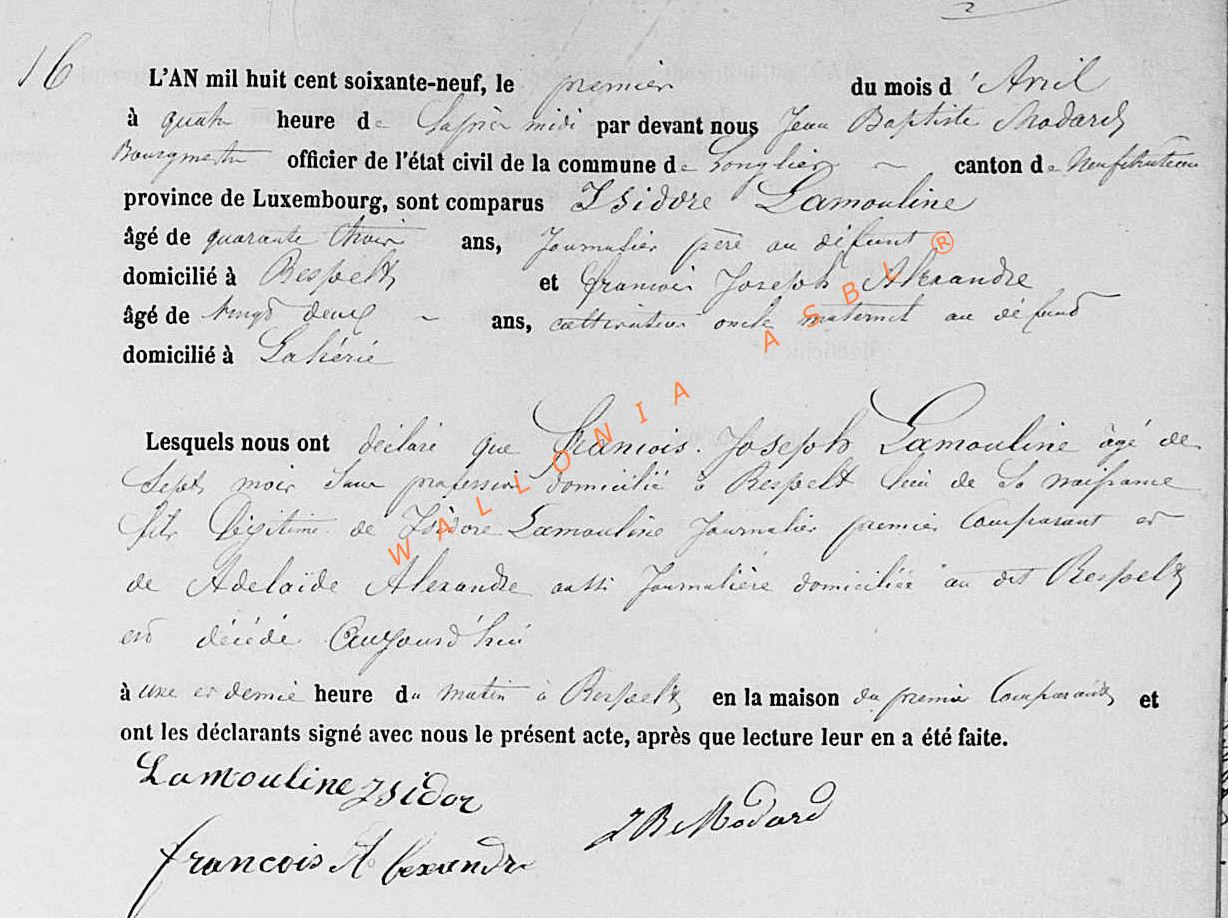 2
16
L'AN mil huit cent soixante-neuf, le premier du mois d'Avril
à quatre heure de Laprès midi par devant nous Jean Baptiste Modard
Bourgmestre officier de l'état civil de la commune de Longlier canton de Neufchateau
province de Luxembourg, sont comparus Isidore Lamouline
âgé de quarante trois ans, Journalier père au défunt
domicilié à Respelt et francois Joseph Alexandre
âgé de vingt deux ans, cultivateur oncle maternel au défunt
domicilié à Lahérie
Lesquels nous ont déclaré que Francois Joseph Lamouline âgé de
Sept mois Sans profession domicilié à Respelt lieu de Sa naissance
fils légitime de Isidore Lamouline Journalier premier Comparant et
de Adelaïde Alexandre aussi Journalière domiciliée au dit Respelt
est décédé Aujourd'hui
à une et demie heure du matin à Respelt en la maison du premier Comparant et
ont les déclarants signé avec nous le présent acte, après que lecture leur en a été faite.
Lamouline Isidor
JB Modard
francois Alexandre
WALLONIA ASBL ®